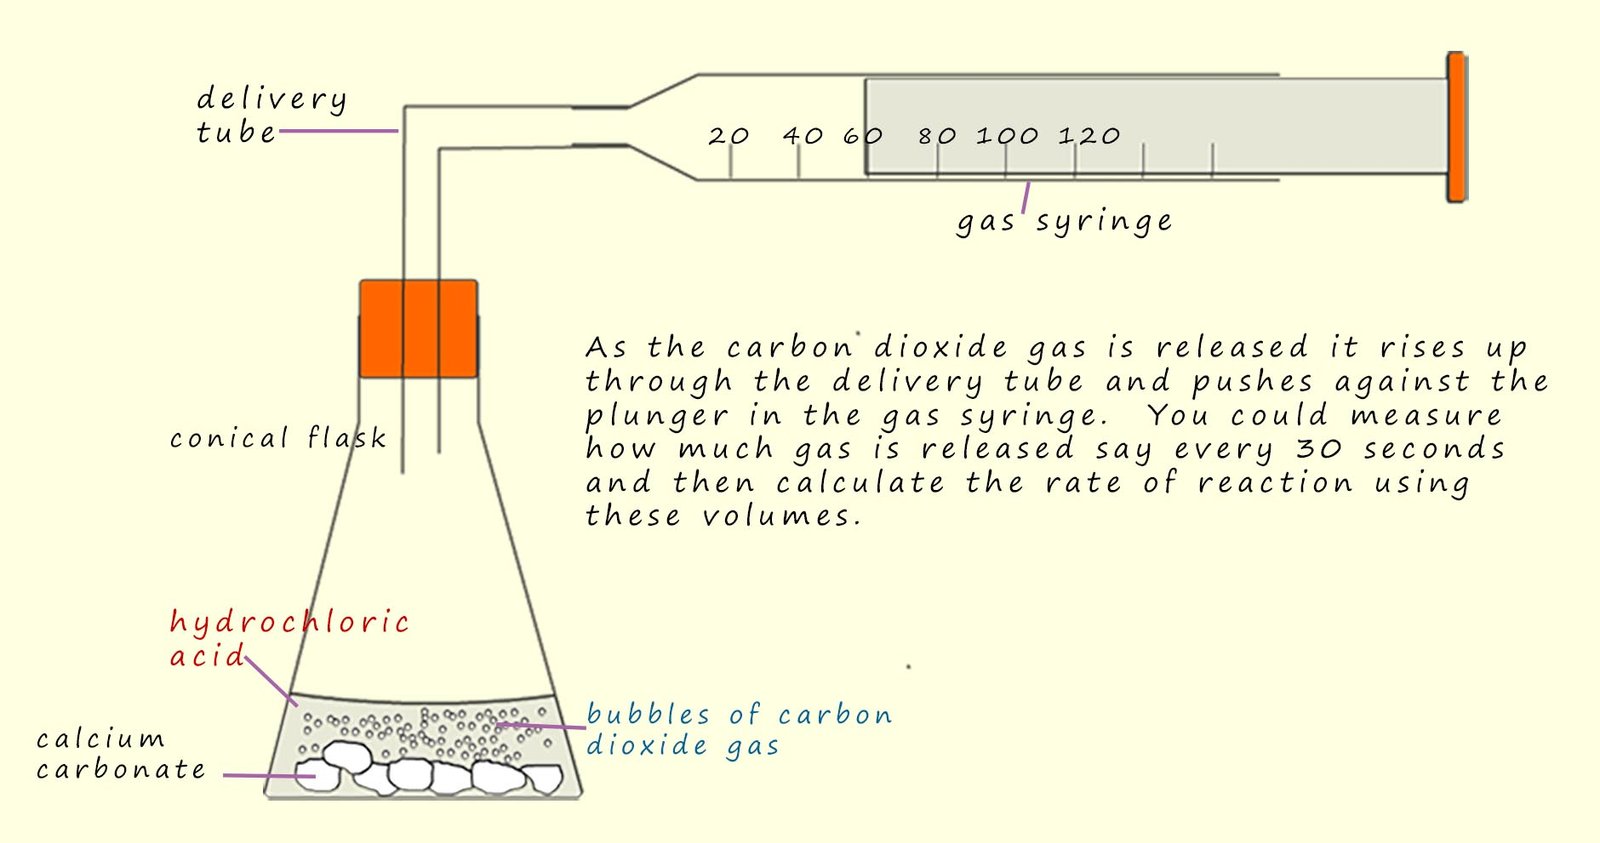 delivery
tube
20 40 60 80 100 120
gas syringe
As the carbon dioxide gas is released it rises up
through the delivery tube and pushes against the
plunger in the gas syringe. You could measure
how much gas is released say every 30 seconds
and then calculate the rate of reaction using
these volumes.
conical flask
hydrochloric
acid
bubbles of carbon
dioxide gas
calcium
carbonate